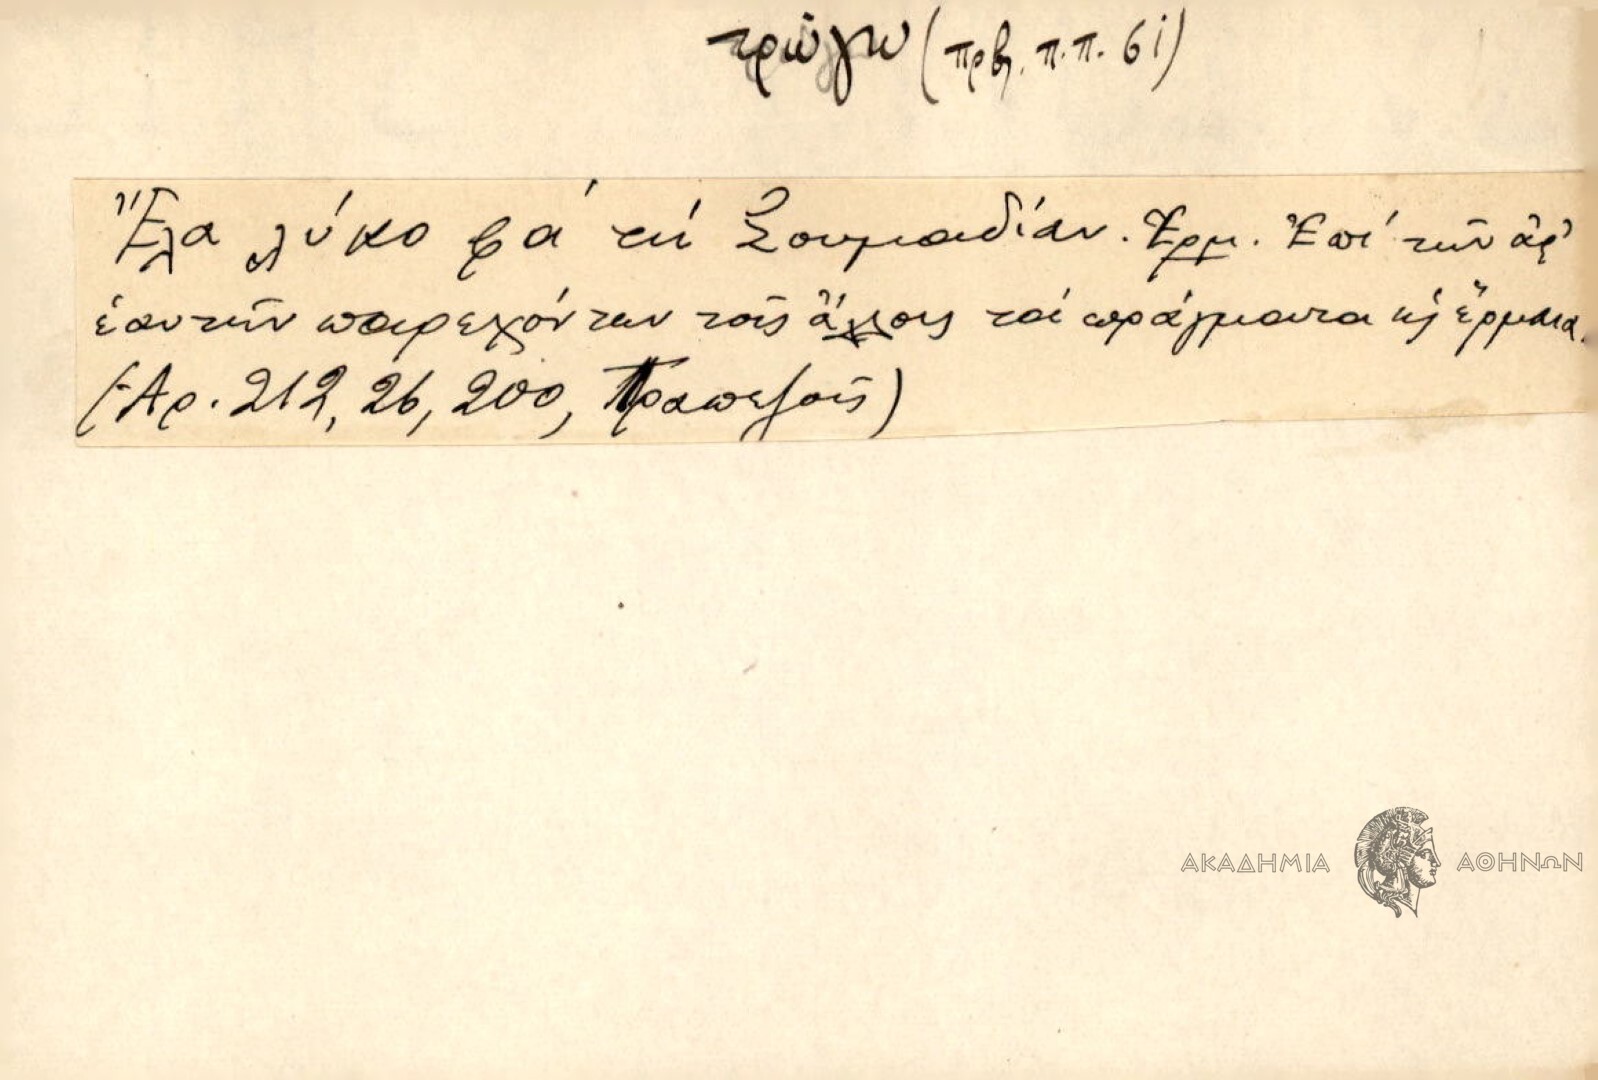 τρώγω (πρβ. π.π. 6i)
Ἔλα λύκο φά τή Σουμαδίαν. Ἑρμ. Ἐπί τῶν ἀφ'
ἑαυτῶν παρεχόντων τοῖς ἄλλοις τά πράγματα ὡς ἕρμαια.
(Αρ. 212, 26, 200, Τραπεζοῦς)
ΑΚΑΔΗΜΙΑ ΑΘΗΝΩΝ